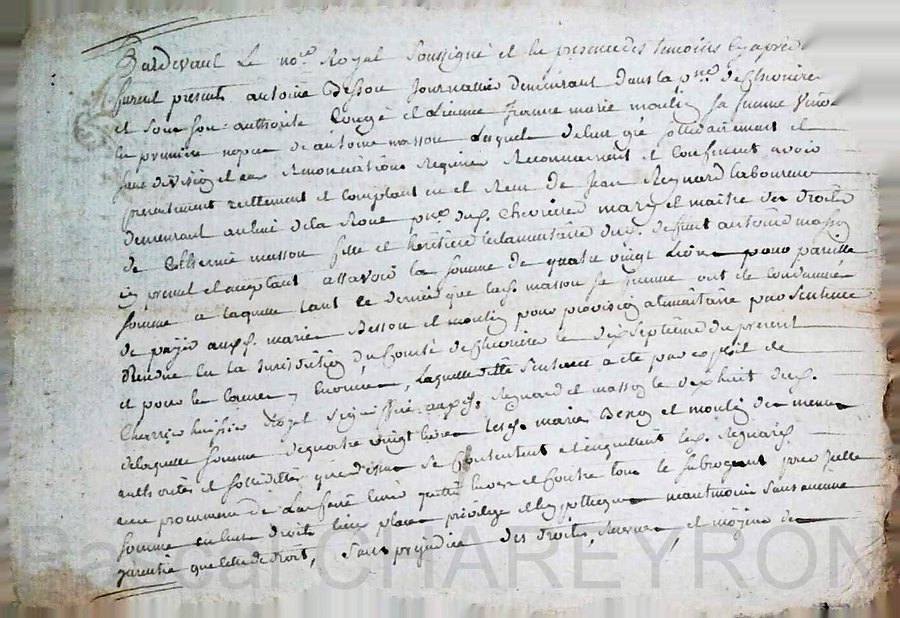 Pardevant Le no.re Royal Soussigné et En presence des temoins cy après
furent presents antoine Besson Journallier demeurant dans la p.sse de Chevrieres
et sous son authorité Congé et Licence Jeanne marie moulin sa femme veuve
En premiere nopce de antoine masson Lesquels de leur gré sollidairement et
sans division et aux Renonciations Requises Reconnoissent et Confessent avoir
presentement reellement et comptant eu et Receu de Jean Reynard laboureur
demeurant au lieu de la Roue p.sse dud. Chevrieres mary et maitre des droits
de Etiennie masson fille et heritiere testamentaire dud. deffunt antoine masson
Cy present et acceptant assavoir la somme de quatre vingt Livres pour pareille
somme a laquelle tant le dernier que lad. masson sa femme ont été condamnés
de payer auxd. mariés Besson et moulin pour provision alimentaire par Sentence
Rendue En la Jurisdiction du Comté de Chevrieres le dix Septieme du present
et pour les Causes y Enoncées, Laquelle ditte Sentence a été par exploit de
huissier Royal Signiffiée auxd. Reynard et masson le dix huit dud.
de laquelle somme de quatre vingt livres lesd. mariés Beson et moulin de memes
authorités et sollidités que dessus se Contentent et en quittent led. Reynard
avec promesse de L'en faire tenir quitte Envers et Contre tous le subrogeant pour Icelle
somme En leur droits lieu place privilege et hypotheque neantmoins Sans aucune
garentie que celle de droit, Sans prejudice des droits, et moyens de
Pascal CHAREYRON